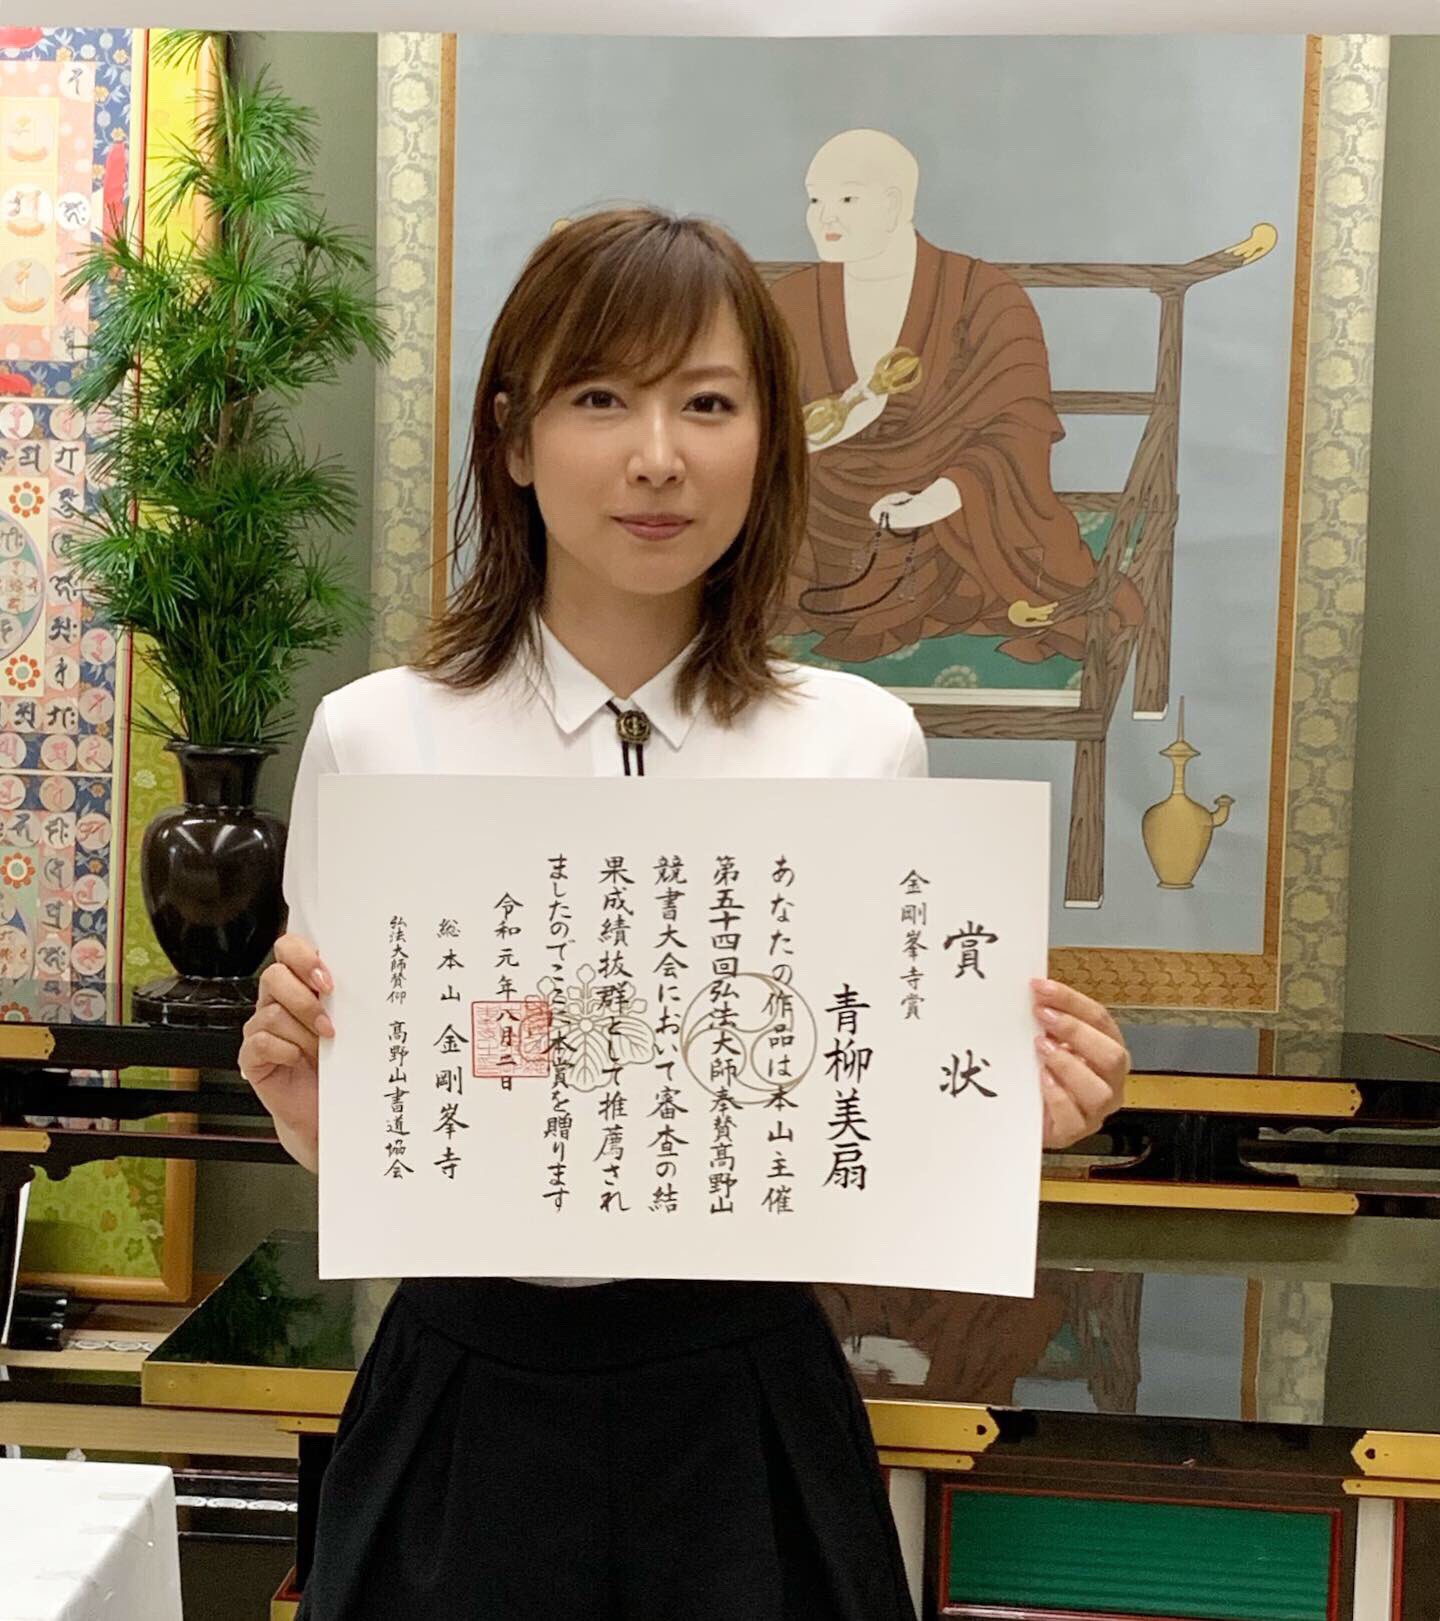 賞状
金剛峯寺賞
青柳美扇
あなたの作品は本山主催
第五十四回弘法大師奉賛高野山
競書大会において審査の結
果成績抜群として推薦され
ましたのでここに本賞を贈ります
令和元年八月二日
総本山金剛峯寺
弘法大師賛仰 高野山書道協会